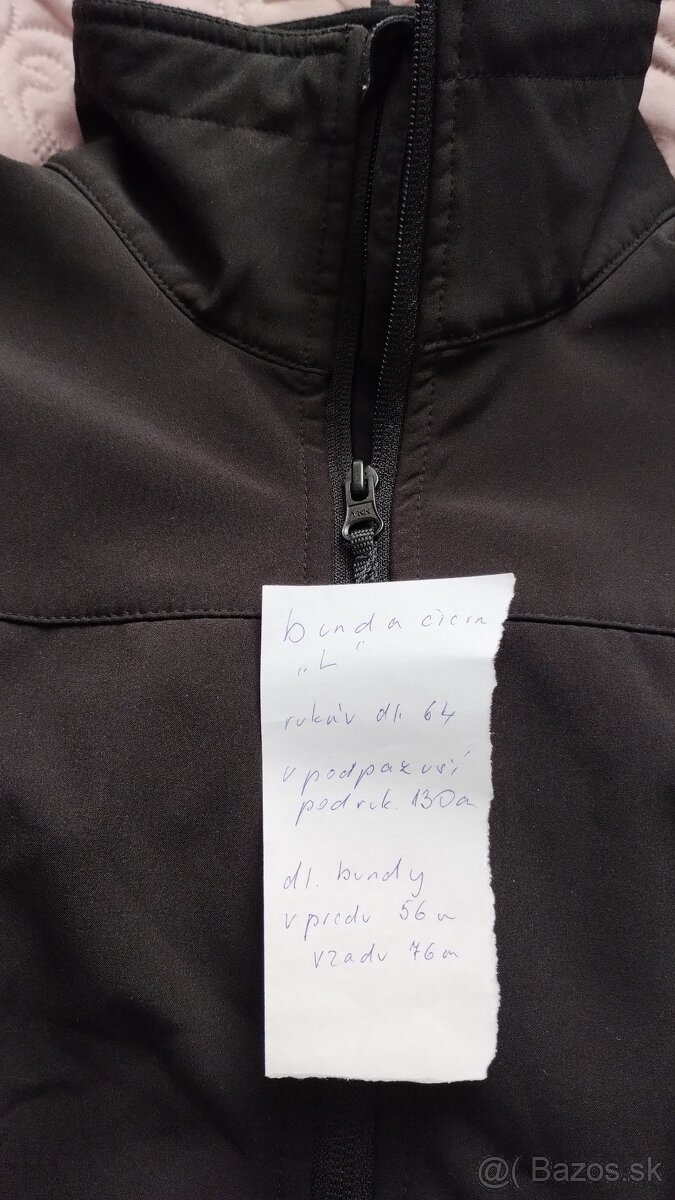 YKK
bunda čiern
„L"
rukáv dl. 64
v podpazuší
podruk. 130cm
dl. bundy
vpredu 56cm
vzadu 76cm
@( Bazos.sk